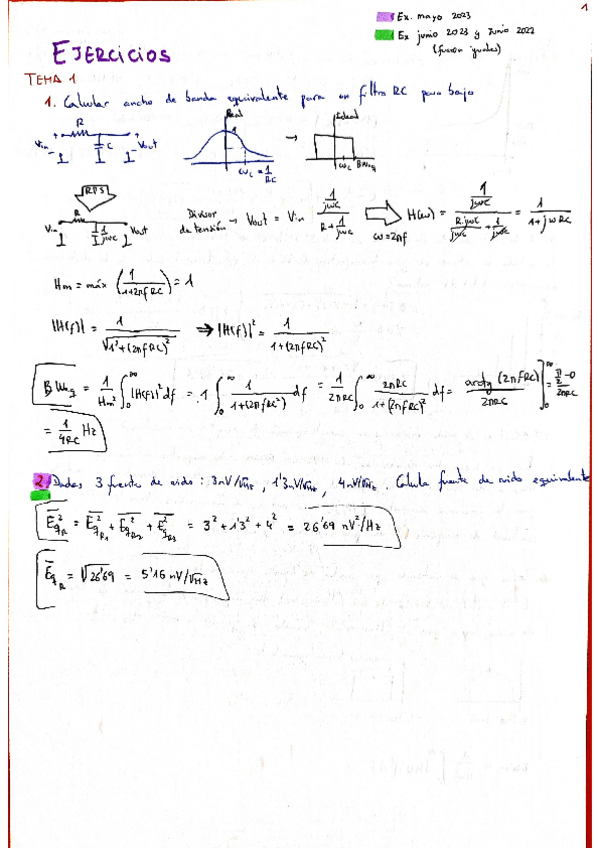 1
Ex. mayo 2023
Ex junio 2023 y Junio 2022
(fueron iguales)
EJERCICIOS
TEMA 1
1. Calcular ancho de banda equivalente para un filtro RC paso bajo
R
+ Vin - C + Vout -
Real
1
ωc = 1/RC
→
Ideal
ωc BWeq
RPS
Vin R 1/jωC Vout
Divisor de tensión → Vout = Vin (1/jωC)/(R + 1/jωC)
ω=2πf
H(ω) = (1/jωC)/(R·jωC/jωC + 1/jωC) = 1/(1+jωRC)
Hm = máx (1/(1+2πfRC)) = 1
|H(f)| = 1/√(1²+(2πfRC)²) ⇒ |H(f)|² = 1/(1+(2πfRC)²)
BWeq = 1/Hm² ∫₀^∞ |H(f)|² df = 1 ∫₀^∞ 1/(1+(2πfRC²)) df = 1/2πRC ∫₀^∞ 2πRC/(1+(2πfRC)²) df = arctg (2πfRC)/2πRC ]₀^∞ = (π/2 - 0)/2πRC
= 1/4RC Hz
2. Dadas 3 fuente de ruido: 3nV/√Hz, 1'3nV/√Hz, 4nV/√Hz. Calcula fuente de ruido equivalente
E²qR = E²qR1 + E²qR2 + E²qR3 = 3² + 1'3² + 4² = 26'69 nV²/Hz
EqR = √26'69 = 5'16 nV/√Hz